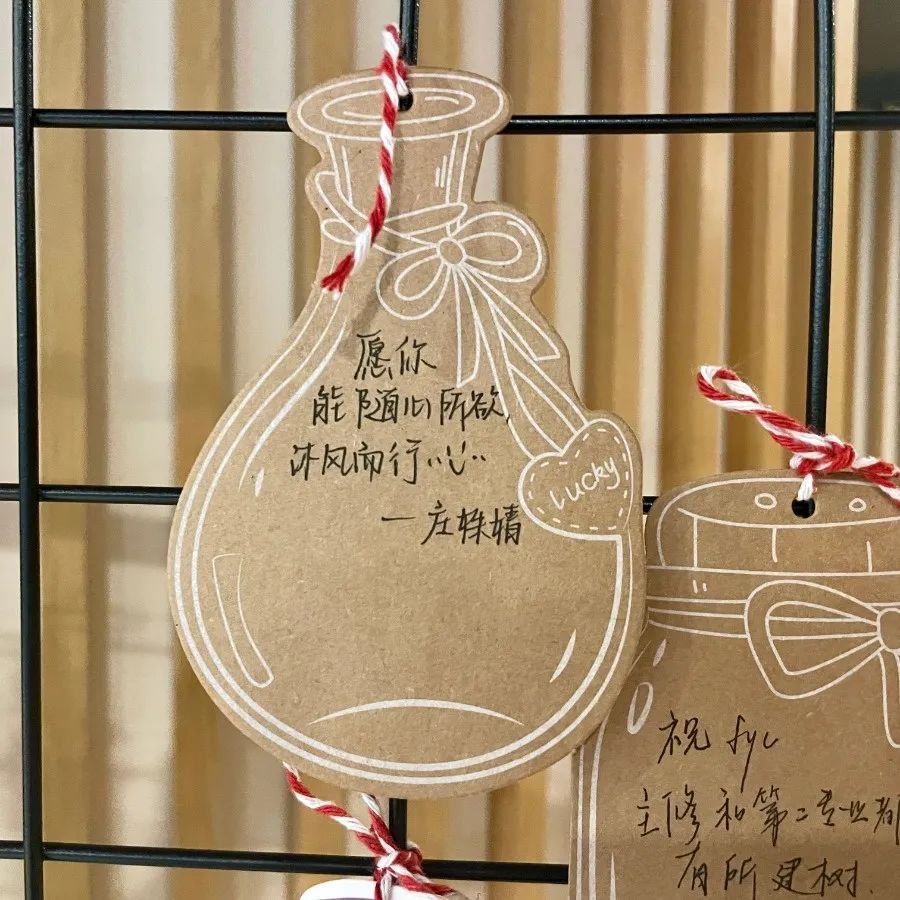 愿你
能随心所欲,
沐风而行
一庄姝婧
lucky
祝 fyc
主修和第二专业都
有所建树.